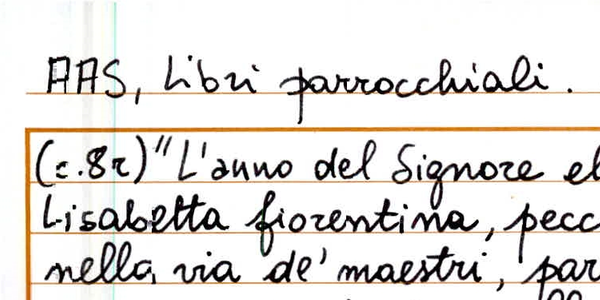 AAS, Libri parrocchiali.
(c.8r) "L'anno del Signore el
Lisabetta fiorentina, pecc
nella via de' maestri, par